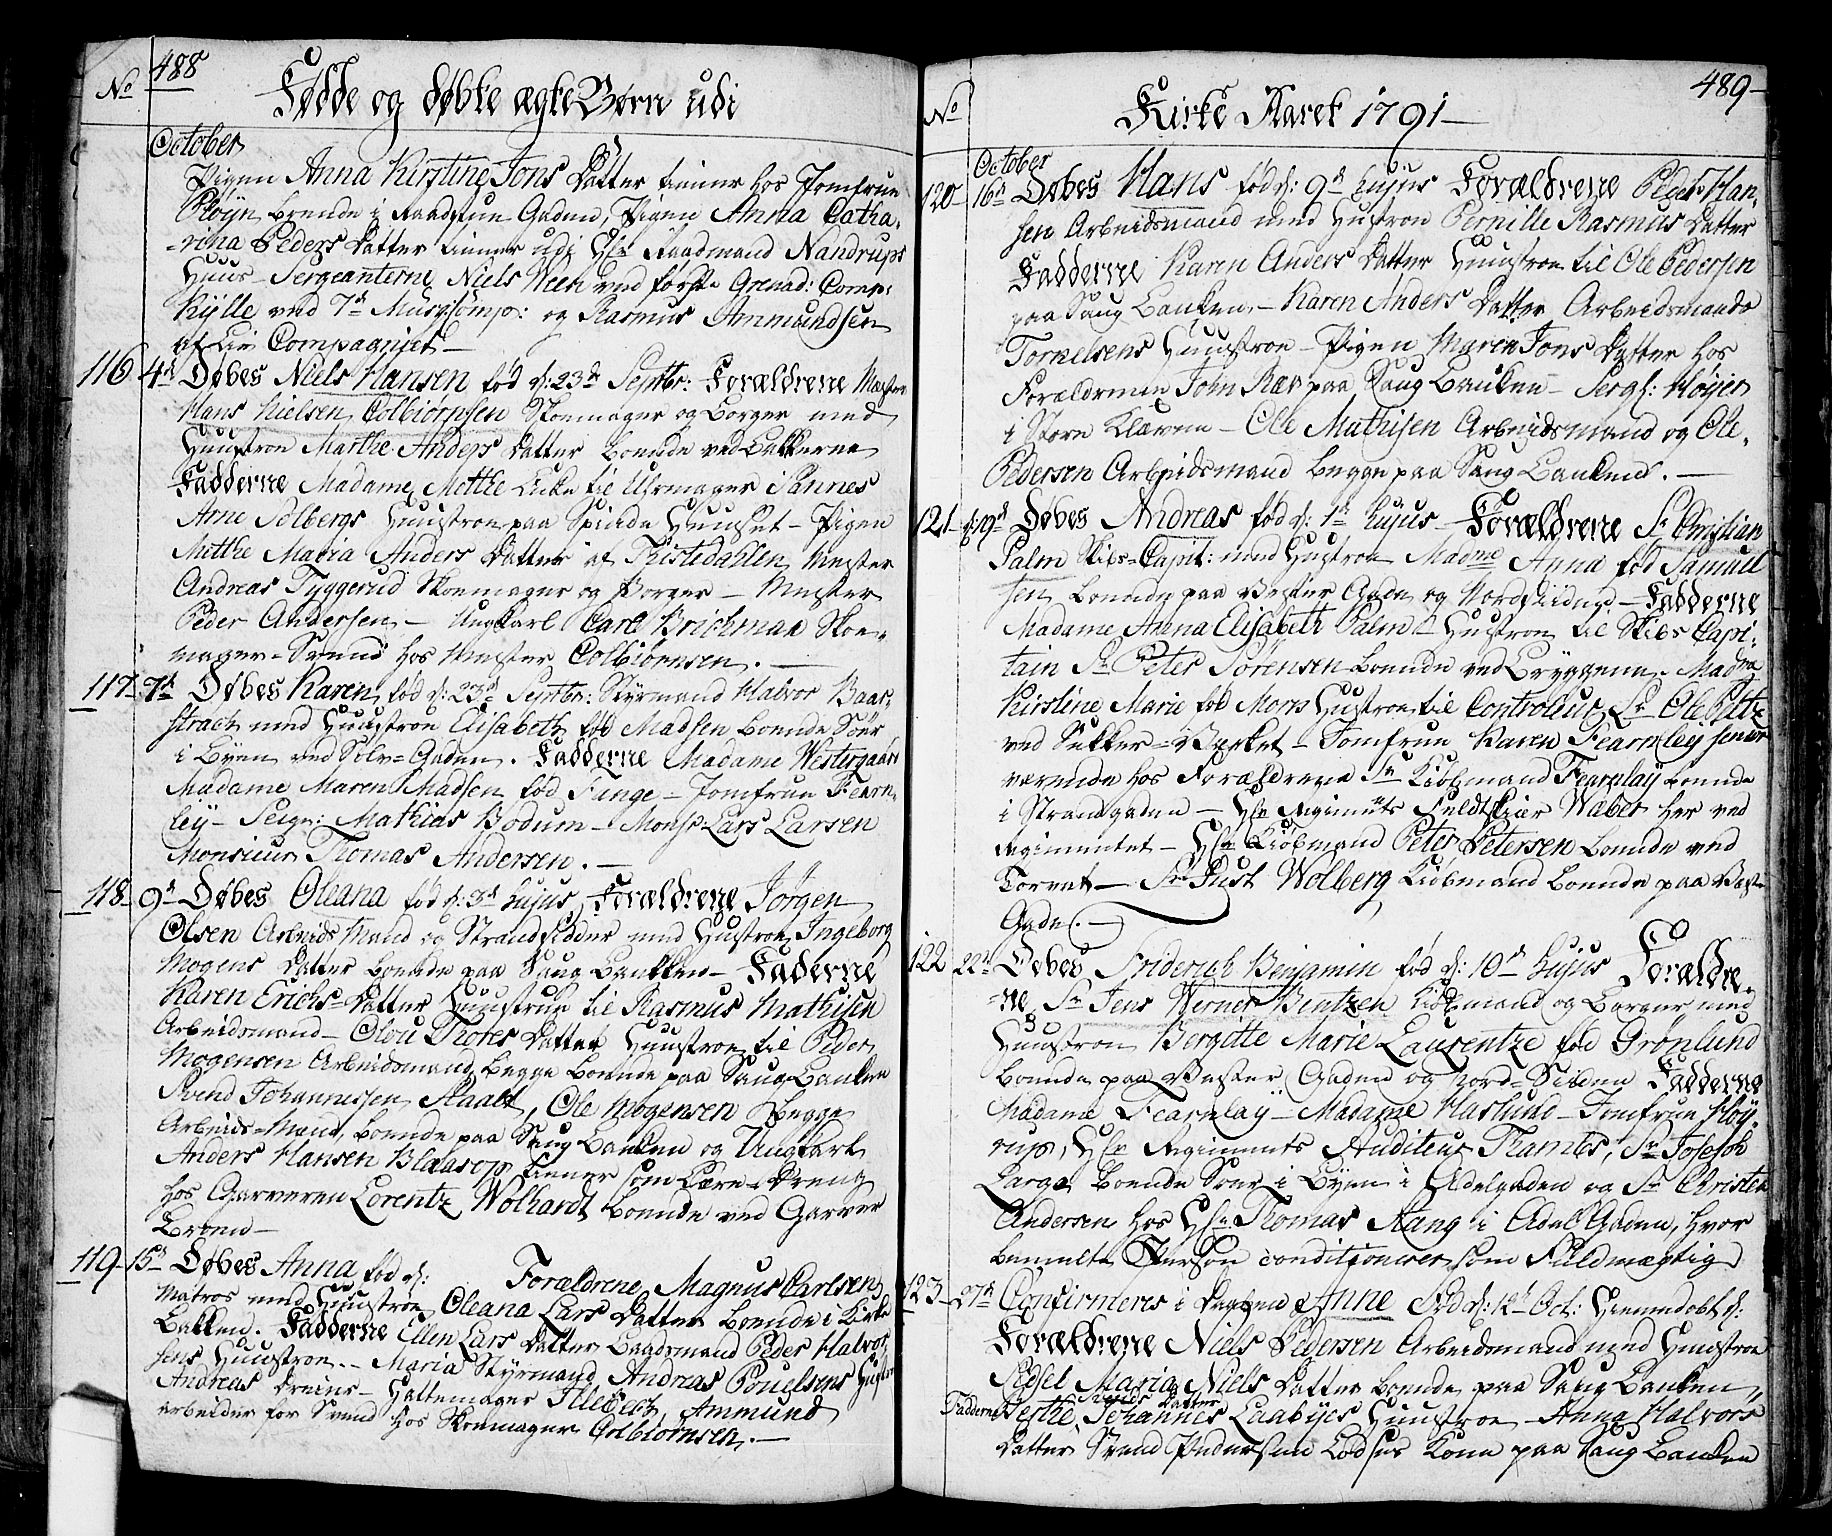 488
No
Fødde og døbte ægte Børn udi
October
Pigen Anna Kirstine Jons Datter tiener hos Jomfrue
Pløyn boende i Raadstue Gaden, Pigen Anna Catha-
-rina Peders Datter tiener udi Hr Raadmand Nandrups
Huus - Sergeanterne Niels Ween ved første Grenad: Comp:
Kylle ved 7de Musq: Comp: og Rasmus Ammundsen
af Liv Compagniet -
116 4de Døbes Niels Hansen fød d: 23de Septbr: Forældrene Mester
Hans Nielsen Colbiørnsen Skoemager og Borger med
Hustroe Marthe Anders Datter boende ved Bakkerne
Fadderne Madame Mette Licke til Uhrmager Sannes
Arne Solbergs Huustroe paa Spinde Huuset - Pigen
Methe Maria Anders Datter af Tistedahlen, Mester
Andreas Tyggerud Skoemager og Borger - Mester
Peder Andersen - Ungkarl Carl Brichman Skoe-
mager-Svend hos Mester Colbiørnsen. -
117 7de Døbes Karen fød d: 23de Septbr: Styrmand Halvor Baar-
strach med Huustroe Elisabeth fød Madsen boende Sør
i Byen ved Sølv-Gaden. Fadderne Madame Westergaard
Madame Maren Madsen fød Funge - Jomfrue Fearn-
ley - Seign: Mathias Bodum - Monsr: Lars Larsen
Monsieur Thomas Andersen. -
118 9de Døbes Oleana fød d: 3de hujus, Forældrene Jørgen
Olsen Arbeids Mand og Strandsidder med Huustroe Ingeborg
Mogens Datter boende paa Saug Banken - Fadderne
Karen Erichs-Datter Huustrue til Rasmus Mathisen
Arbeidsmand - Olou Thores Datter Huustroe til Peder
Mogensen Arbeidsmand, begge boende paa Saug Banken
Svend Johannessen Staalt, Ole Mogensen begge
Arbeids-Mænd, boende paa Saug Banken og Ungkarl
Anders Hansen Blaasop tienner som Lære-Dreng
hos Garveren Lorentz Wolhardt boende ved Garver
Broen -
119 15de Døbes Anna fød d: Forældrene Magnus Carlsen
Matros med Huustroe Oleana Lars Datter boende i Kirke
Bakken. Fadderne Ellen Lars Datter Baadsmand Peder Halvor-
sens Huustroe. - Maria Styrmand Andreas Povelsens Hustroe
Andreas Dreier - Hattemager Illebech Ammund
arbeider for Svend hos Skoemager Colbiørnsen. -
489
No
Kirke Aaret 1791
October
120 16de Døbes Hans fød d: 9de hujus Forældrene Peder Han-
sen Arbeidsmand med Hustroe Pernille Rasmus Datter
Fadderne Karen Anders Datter Huustroe til Ole Pedersen
paa Saug Banken - Karen Anders Datter Arbeidsmands
Tornelsens Huustroe - Pigen Maren Jons Datter hos
Forældrene John Ræv paa Saug Banken - Serg: Høyer
i Store Klæven - Ole Mathisen Arbeidsmand og Ole
Pedersen Arbeidsmand begge paa Saug Banken. -
121 d: 19de Døbes Andreas fød d: 1de hujus - Forældrene Sr Christian
Palm Skibs-Capit: med Hustroe Madme Anna fød Samuel
sen boende paa Vester Gade og Nordsiden - Fadderne
Madame Anna Elisabeth Palm - Huustroe til Skibs Capi-
tain Sr Peter Sørensen boende ved Bryggene - Madme
Kirstine Marie fød Morts Hustroe til Controleur Sr Ole Peltz
ved Sukker-Værket - Jomfrue Karen Fearnley senior
værende hos Forældrene Sr Kiøbmand Fearnley boende
i Strandgaden - Hr Regiments Feldtskiær Waber her ved
Regimentet - Hr Kiøbmand Peter Petersen boende ved
Torvet - Sr Just Wolberg Kiøbmand boende paa Vester
Gade. -
122 22de Døbes Friderich Benjamin fød d: 10de hujus Forældre-
-ne Sr Jens Werner Bentzen Kiøbmand og Borger med
Huustroe Bergitte Marie Laurentze fød Grønlund
boende paa Vester Gaden og Nord-Siden Fadderne
Madame Fearnlay - Madame Haslund - Jomfrue Høy-
rup, Hr Regiments Auditeur Thames, Sr Joseph
Large boende Sør i Byen i Adelgaden og Sr Christen
Andersen hos Hr Thomas Stang i Adel Gaden, hvor
bemelte Person conditionerer som Fuldmægtig
123 27de Confirmeres i Daaben Anne Fød d: 12de Oct: Hiemmedøbt d:
Forældrene Niels Pedersen Arbeidsmand med Huustroe
Sidsel Maria Niels Datter boende paa Saug Banken,
Fadderne Berthe Johannes Laabyes Huustroe - Anna Halvors
Datter Svend Pedersen Lodses Kone paa Saug Banken